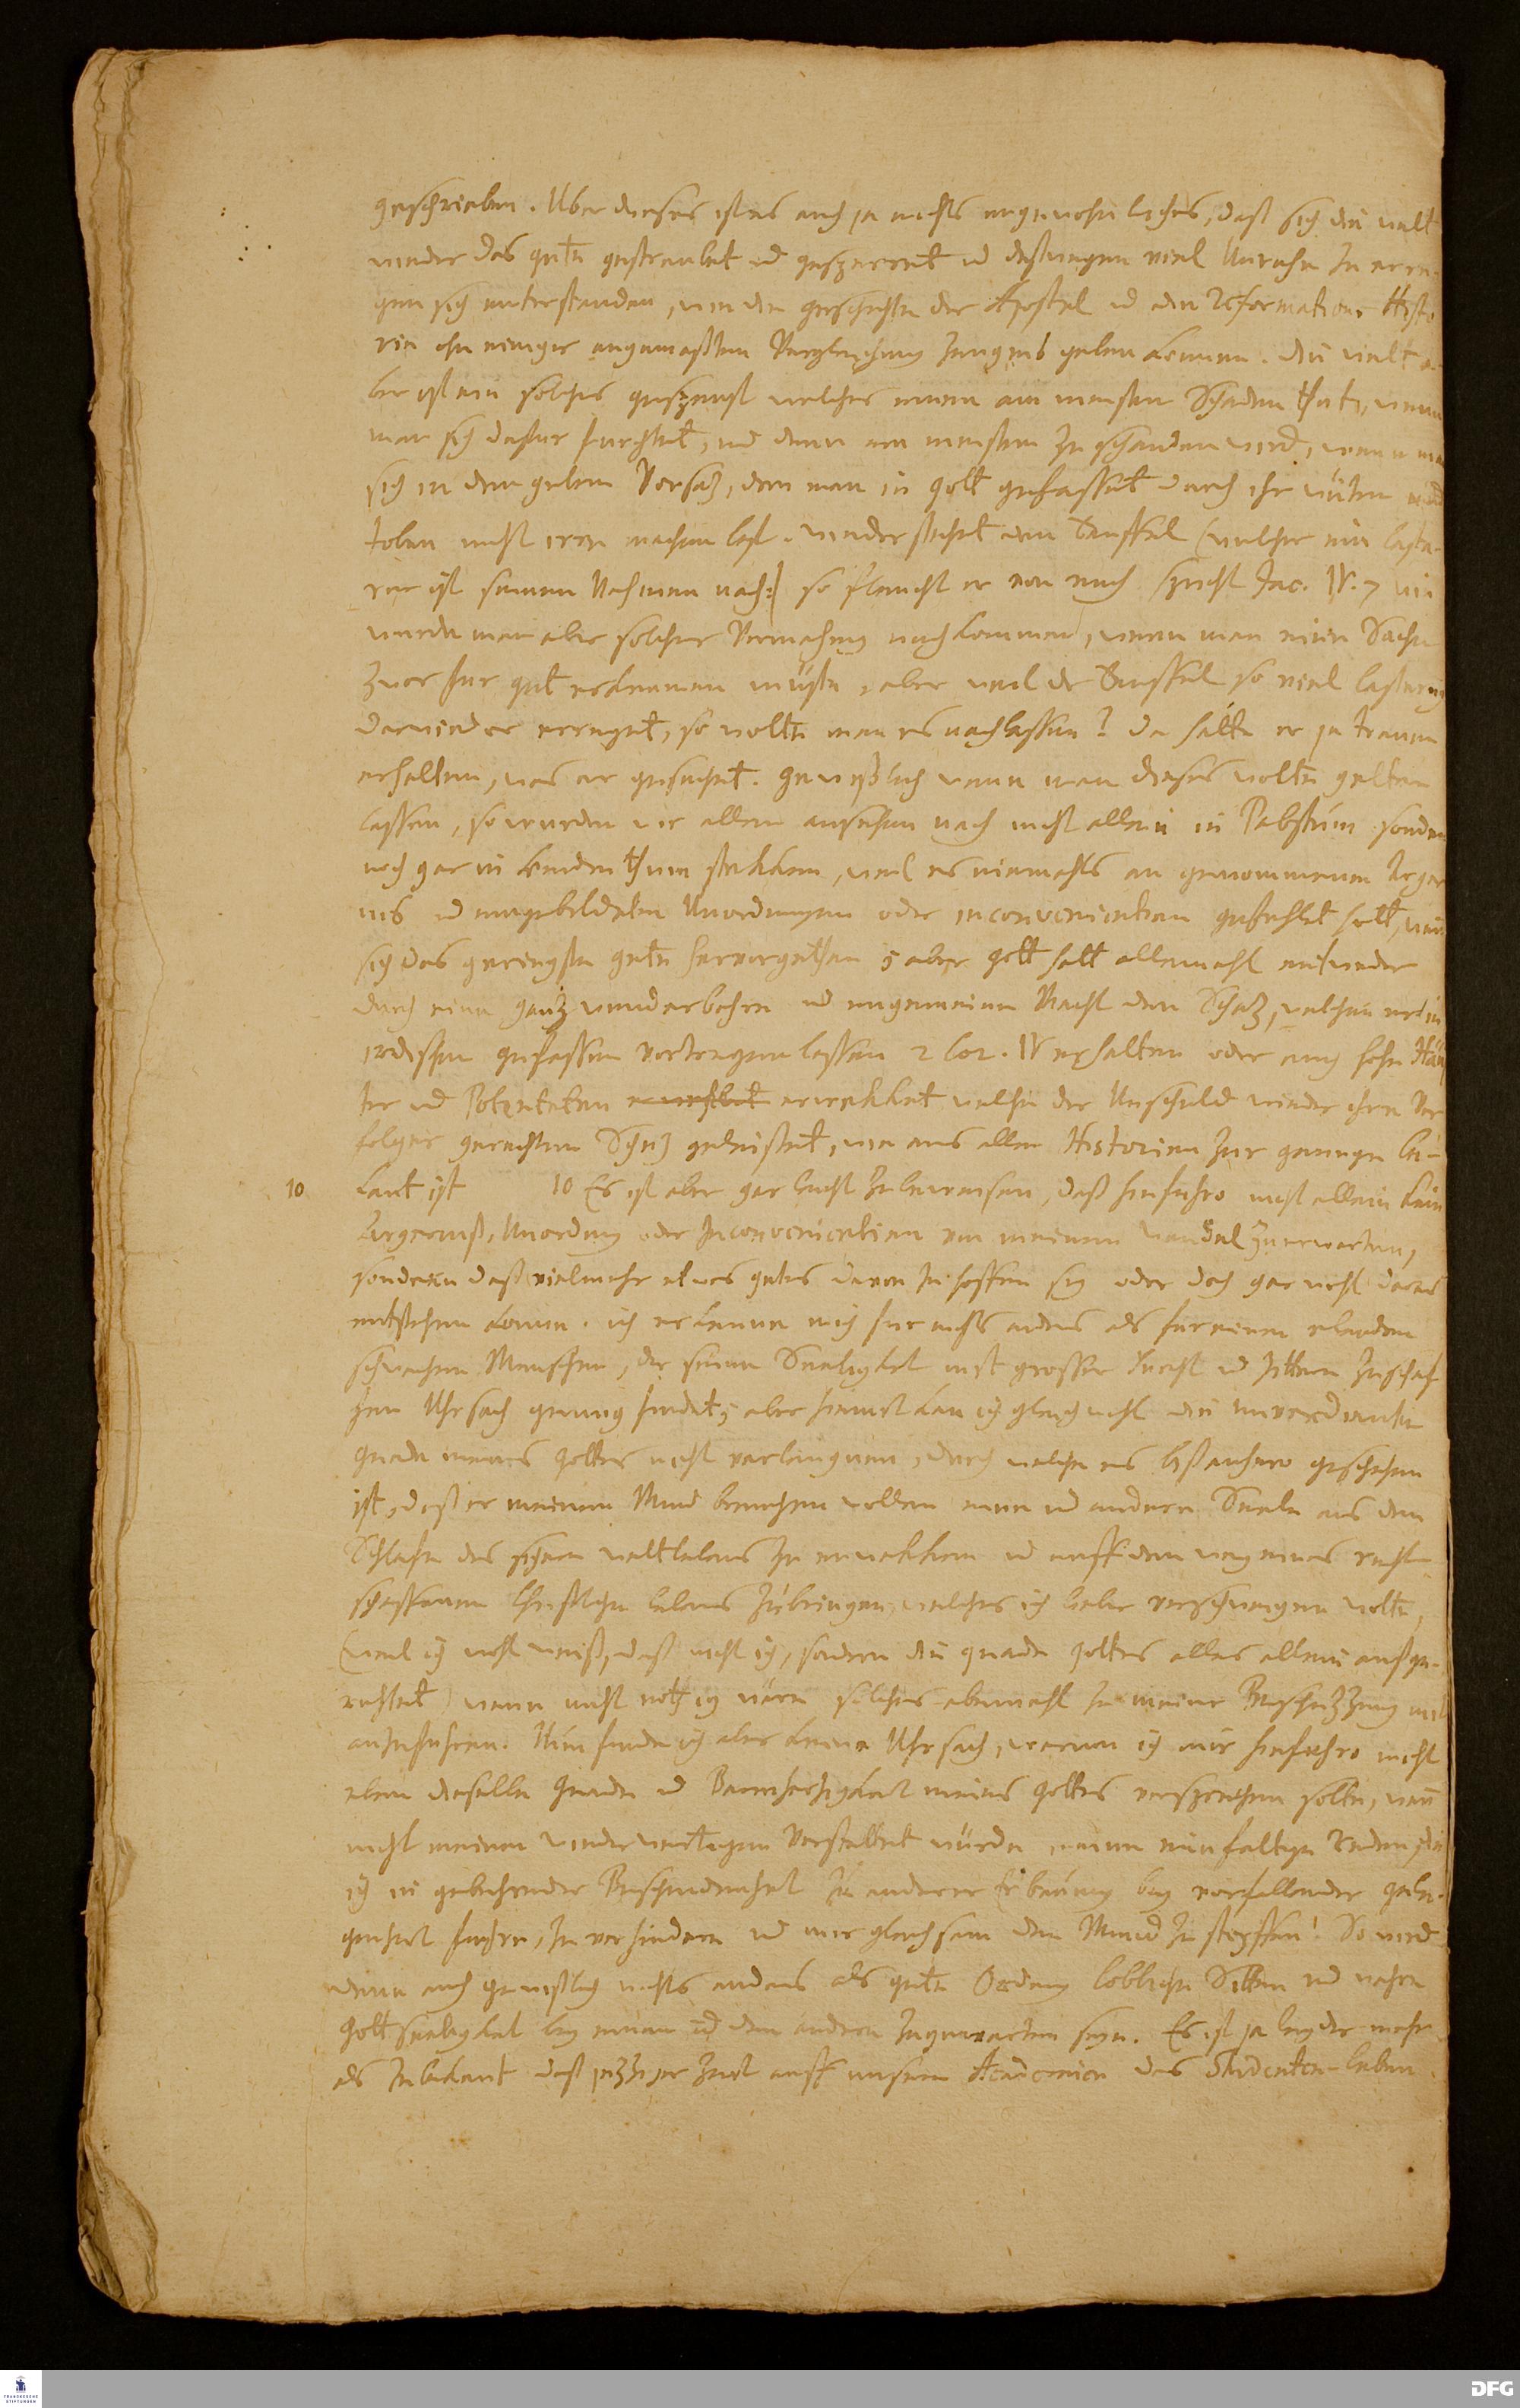 geschrieben. Über dieses ist es auch ja nichts ungewohnliches, daß sich die welt
wieder das gute gestreubet ud gesperret ud deßwegen viel Unruhe zu erre-
gen sich unterstanden, wie die geschichte der Apostel ud die Reformations Histo
rie ohn einiger angemaßten Vergleichung Zeugnis geben konnen. die welt a-
ber ist ein solches gespenst welches einem am meisten Schaden thut, wenn
man sich dafur furchtet, und denn am meisten zu schanden wird, wenn man
sich in dem guten Vorsaz, den man in Gott gefasset durch ihr wüten und
toben nicht irre machen lest. wiederstehet dem Teuffel (welcher ein laste-
rer ist seinem Nahmen nach) so fleucht er von euch spricht Jac. IV. 7 wie
wurde man aber solcher Vermahnung nachkommen, wenn man eine Sache
zwar fur gut erkennen müste, aber weil der Teuffel so viel lasterung
darwieder erreget, so wolte man es nachlassen? da hätte er ja traun
erhalten, was er gesuchet. Gewißlich wenn man dieses wolte gelten
lassen, so wurden wir allem ansehen nach nicht allein in Pabstum sondern
noch gar in heidenthum stekken, weil es niemahls an genommenen Arger
nis ud eingebildeten Unordnungen oder inconvenientien gefehlet hatt, wenn
sich das geringste gute hervorgethan; aber Gott hatt allemahl entweder
durch eine ganz wunderbahre ud ungemeine Macht den Schaz, welchen er in
irdischen gefassen vortragen lassen 2 Cor. IV erhalten oder auch hohe Häu
ter ud Potentaten erwekket welche der Unschuld wieder ihre Ver
folger gerechten Schuz geleistet, wie aus allen Historien zur genuge be-
10 kant ist 10 Es ist aber gar leicht zu beweisen, daß hinfuhro nicht allein kein
Ärgerniß, Unordnung oder Inconvenientien von meinem wandel zu erwarten,
sondern daß vielmehr etwas gutes davon zu hoffen sey oder doch gar wohl daraus
entstehen konne. ich erkenne mich fur nichts anders als fur einen elenden
schwachen Menschen, der seine Seeligkeit mit grosser furcht ud zittern zu schaf
fen Uhrsach genung findet; aber hiemit kan ich gleichwohl die unverdiente
gnade meines Gottes nicht verleugnen, durch welche es bißanhero geschehen
ist, daß er meinen Mund brauchen wollen eine ud andere Seele aus dem
Schlafe des sichern weltlebens zu erwekken ud auff den weg eines recht-
schaffenen Christlichen lebens zubringen, welches ich lieber verschweigen wolte,
(weil ich wohl weiß, daß nicht ich, sondern die gnade Gottes alles allein außge-
richtet) wenn nicht nothig wäre solches abermahl zu meiner Beschuzzung mit
anzufuhren. Nun finde ich aber keine Uhrsach, warum ich mir hinfuhro nicht
eben dieselbe Gnade ud Barmherzigkeit meines Gottes versprechen solte, wenn
nicht meinen wiederwertigen verstattet würde, meine einfaltige Reden, die
ich in gebuhrender Bescheidenheit zu anderer Erbauung bey vorfallender gele-
genheit fuhre, zu verhindern ud mir gleichsam den Mund zu stopffen! So wird
denn auch gewißlich nichts anders als gute Ordnung lobliche Sitten und wahre
Gottseeligkeit bey einem ud dem andern zugewarten seyn. Es ist ja leyder mehr
als zu bekant daß jezziger Zeit auff unsern Academien das Studenten-leben